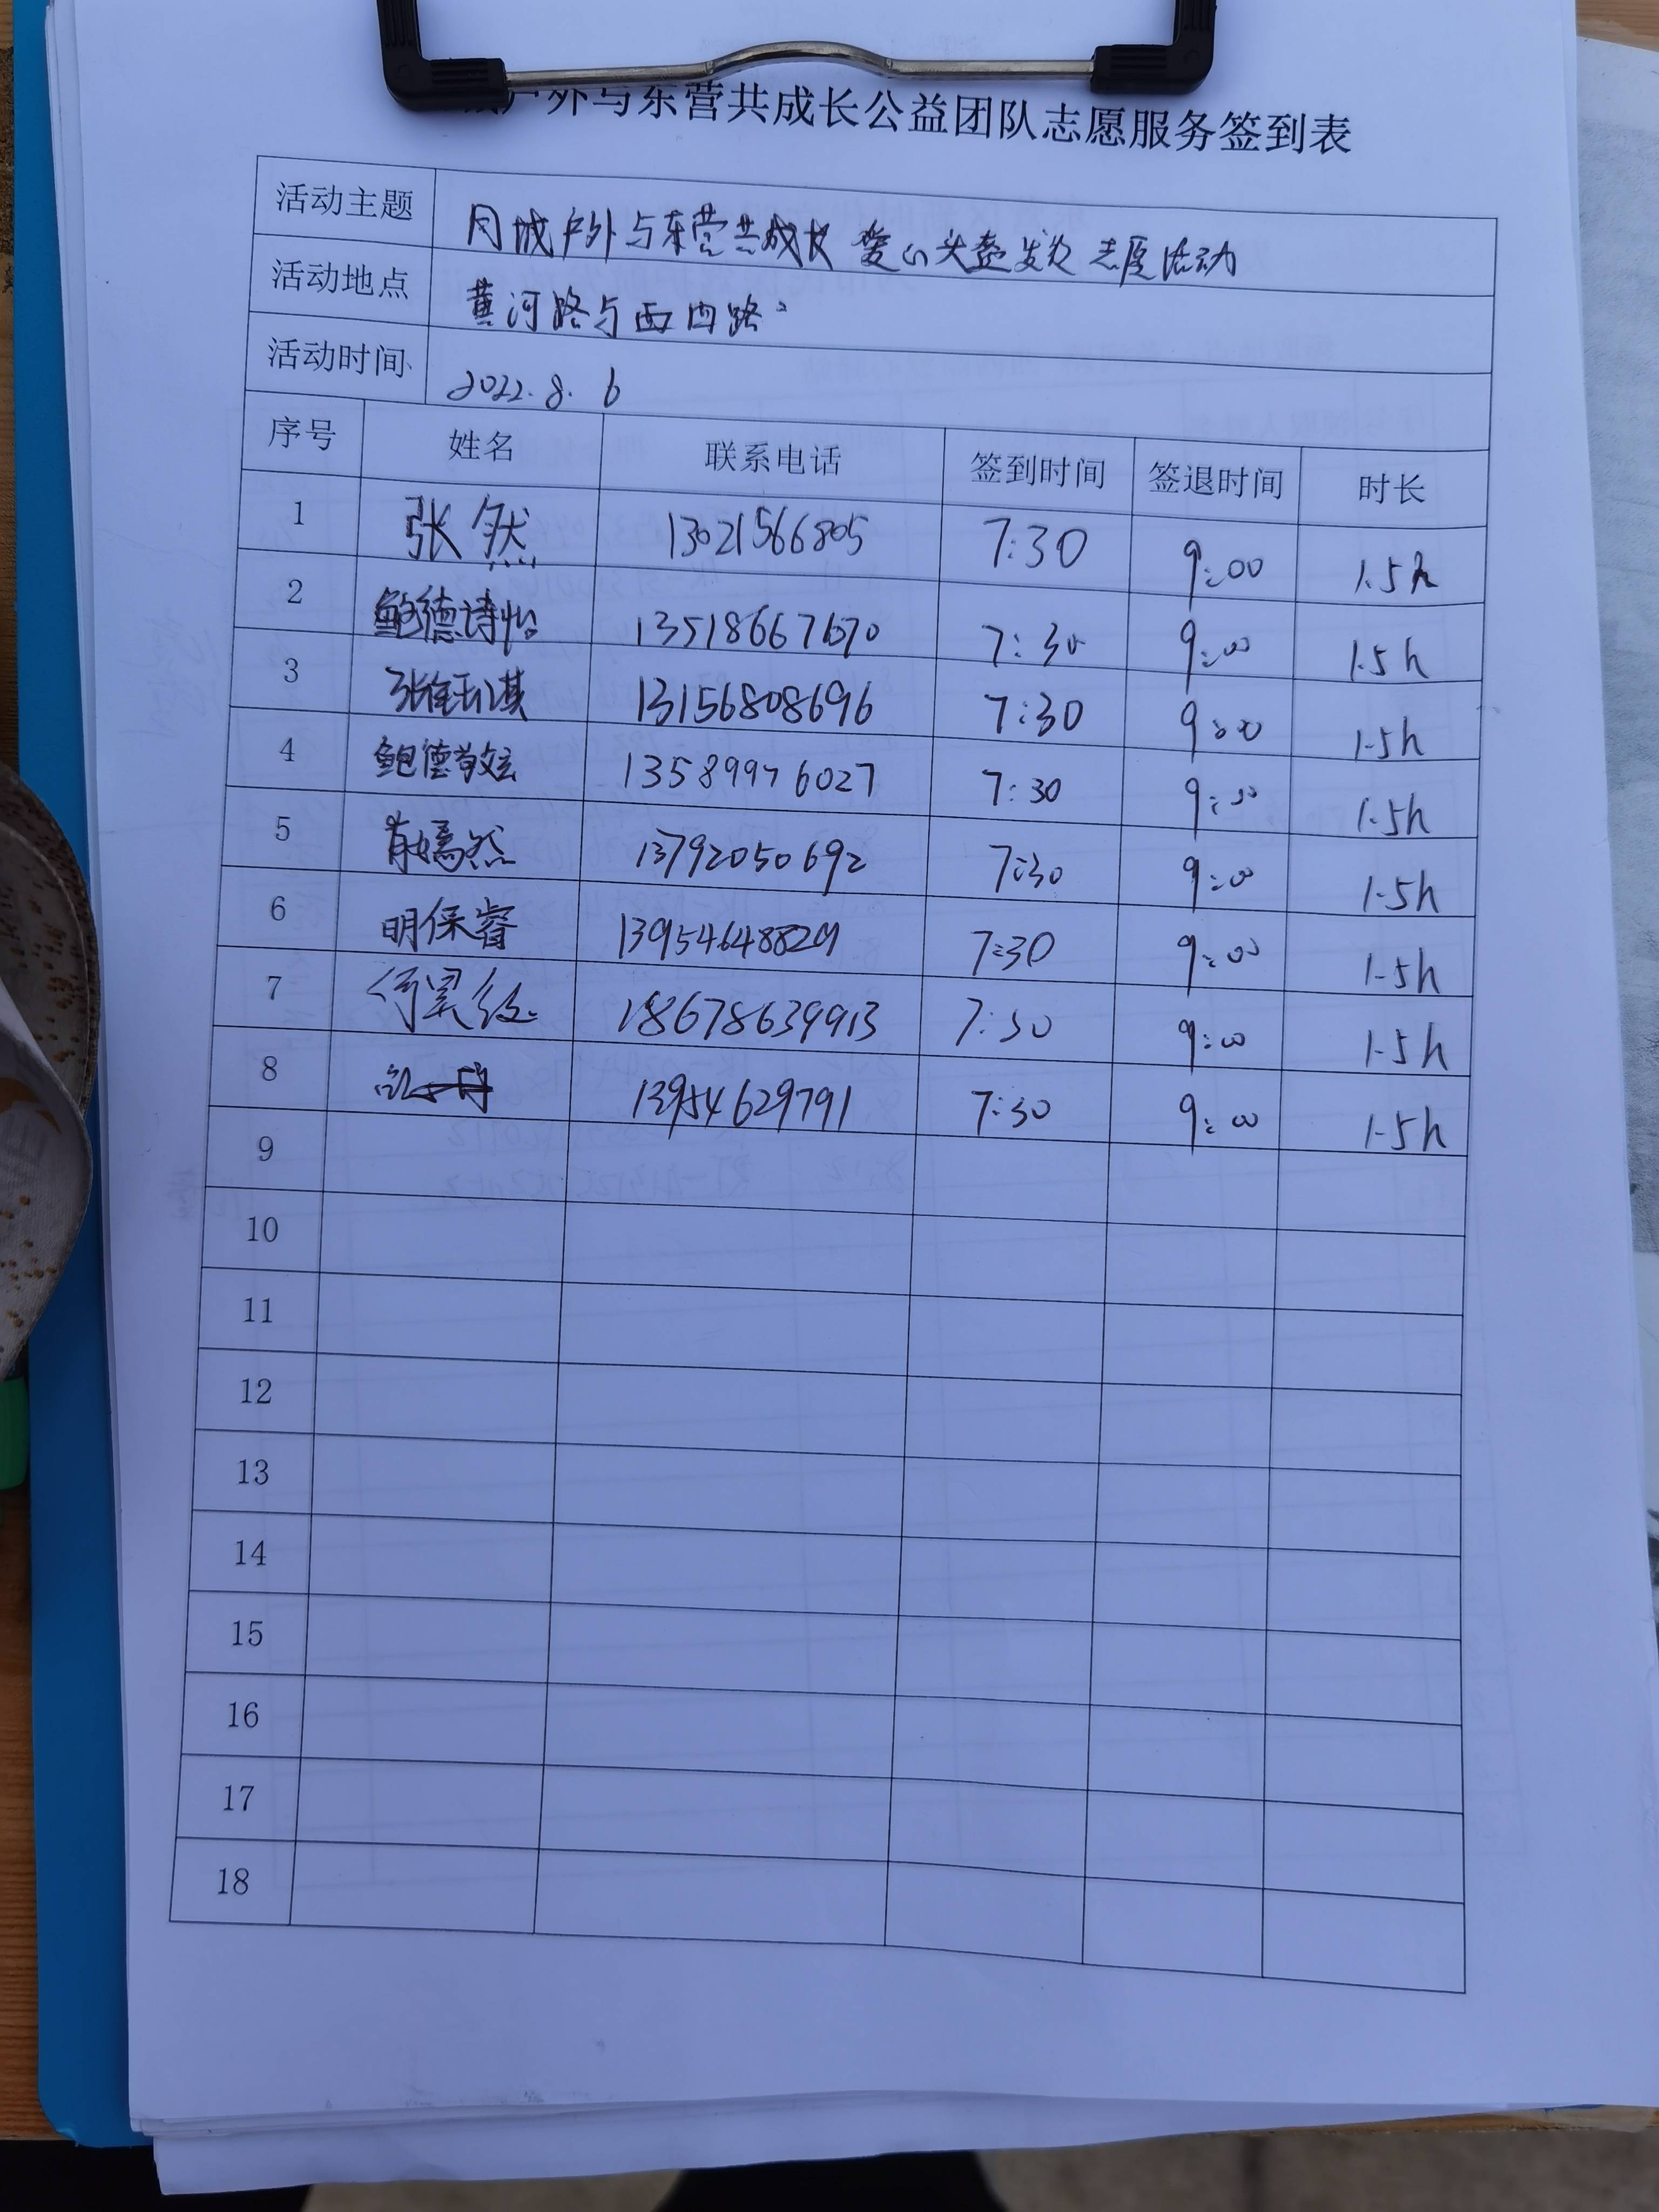 户外与东营共成长公益团队志愿服务签到表
活动主题 同城户外与东营共成长 爱心头盔发放 志愿活动
活动地点 黄河路与西四路
活动时间 2022.8.6
序号 姓名 联系电话 签到时间 签退时间 时长
1 张然 13021566805 7:30 9:00 1.5h
2 鲍德诗怡 13518667670 7:30 9:00 1.5h
3 淇 13156808696 7:30 9:00 1.5h
4 鲍德 13589976027 7:30 9:00 1.5h
5 肖嫣然 13792050692 7:30 9:00 1.5h
6 明保睿 13954648829 7:30 9:00 1.5h
7 18678639913 7:30 9:00 1.5h
8 13954629791 7:30 9:00 1.5h
9
10
11
12
13
14
15
16
17
18